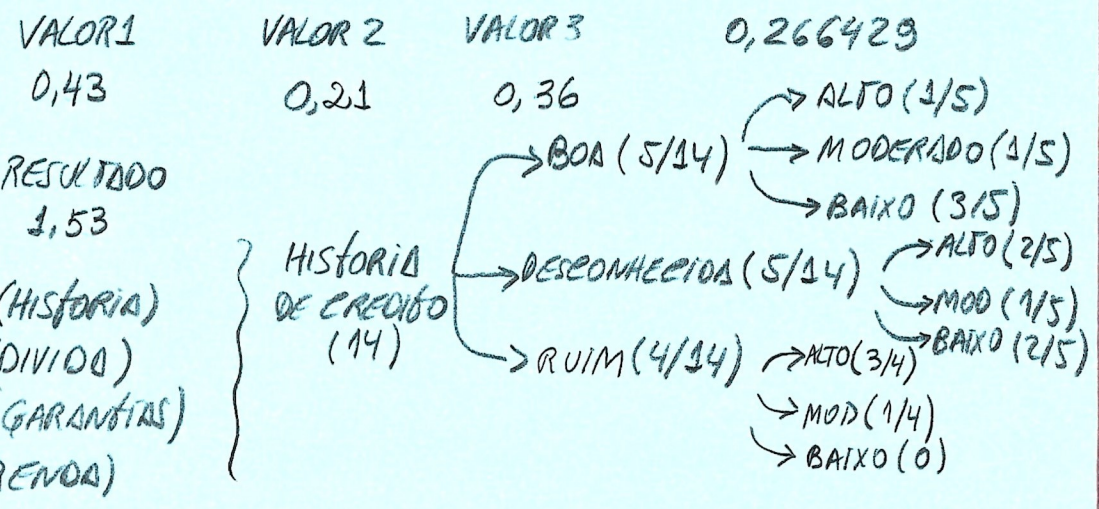 VALOR1 VALOR 2 VALOR 3 0,266429
0,43 0,21 0,36
RESULTADO
1,53
(HISTORIA)
DIVIDA)
GARANTIAS)
ENDA)
HISTORIA
DE CREDITO
(14)
BOA (5/14)
ALTO (1/5)
MODERADO (1/5)
BAIXO (3/5)
DESCONHECIDA (5/14)
ALTO (2/5)
MOD (1/5)
BAIXO (2/5)
RUIM (4/14)
ALTO (3/4)
MOD (1/4)
BAIXO (0)